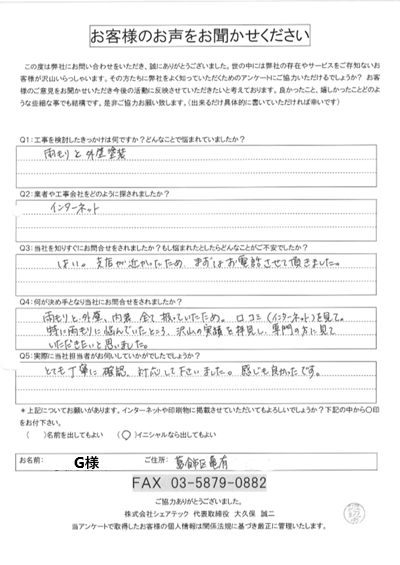 お客様のお声をお聞かせください
この度は弊社にお問い合わせをいただき、誠にありがとうございました。世の中には弊社の存在やサービスをご存知ないお
客様が沢山いらっしゃいます。その方たちに弊社をよく知っていただくためのアンケートにご協力いただけるでしょうか？ お客
様のご意見をお聞かせいただき今後の活動に反映させていただきたいと考えております。良かったこと、嬉しかったことどのよ
うな些細な事でも結構です。是非ご協力お願い致します。(出来るだけ具体的に書いていただければ幸いです)
Q1:工事を検討したきっかけは何ですか？どんなことで悩まれていましたか？
雨もりと外壁塗装
Q2:業者や工事会社をどのように探されましたか？
インターネット
Q3:当社を知りすぐにお問合せをされましたか？もし悩まれたとしたらどんなことがご不安でしたか？
はい。支店が近かったため、まずはお電話させて頂きました。
Q4:何が決め手となり当社にお問合せをされましたか？
雨もりと外壁、内装 全て扱っていたため。口コミ(インターネット)を見て。
特に雨もりに悩んでいたところ、沢山の実績を拝見し、専門の方に見て
いただきたいと思いました。
Q5:実際に当社担当者がお伺いしていかがでしたでしょうか？
とても丁寧に確認、対応して下さいました。感じも良かったです。
＊上記についてお願いがあります。インターネットや印刷物に掲載させていただいてもよろしいでしょうか？下記の中から〇印
をお付下さい。
（ ）名前を出してもよい （〇）イニシャルなら出してもよい
お名前： G様 ご住所： 葛飾区亀有
FAX 03-5879-0882
ご協力ありがとうございました。
株式会社シェアテック 代表取締役 大久保 誠二
当アンケートで取得したお客様の個人情報は関係法規に基づき厳正に管理いたします。